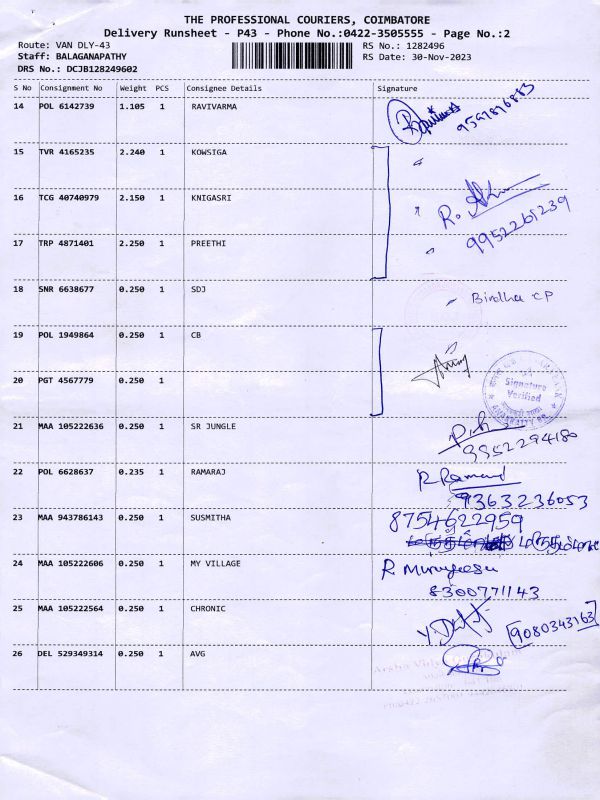 THE PROFESSIONAL COURIERS, COIMBATORE
Delivery Runsheet - P43 - Phone No.:0422-3505555 - Page No.:2
Route: VAN DLY-43 RS No.: 1282496
Staff: BALAGANAPATHY RS Date: 30-Nov-2023
DRS No.: DCJB128249602
S No Consignment No Weight PCS Consignee Details Signature
14 POL 6142739 1.105 1 RAVIVARMA
15 TVR 4165235 2.240 1 KOWSIGA
16 TCG 40740979 2.150 1 KNIGASRI
17 TRP 4871401 2.250 1 PREETHI 9952261239
18 SNR 6638677 0.250 1 SDJ Birdha CP
19 POL 1949864 0.250 1 CB
20 PGT 4567779 0.250 1 Signature Verified
21 MAA 105222636 0.250 1 SR JUNGLE 9952294180
22 POL 6628637 0.235 1 RAMARAJ 9363236053
23 MAA 943786143 0.250 1 SUSMITHA 8754622959
24 MAA 105222606 0.250 1 MY VILLAGE R. Murugesu
8300771143
25 MAA 105222564 0.250 1 CHRONIC 9080343163
26 DEL 529349314 0.250 1 AVG